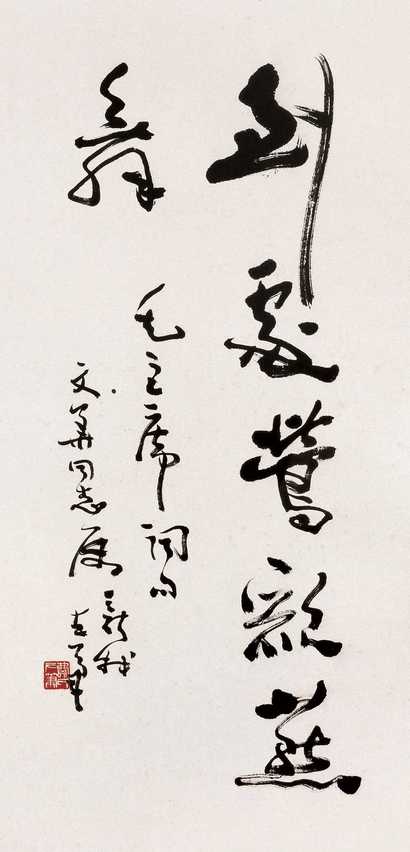 到處鶯歌燕
舞
毛主席詞句
文華同志屬
左筆